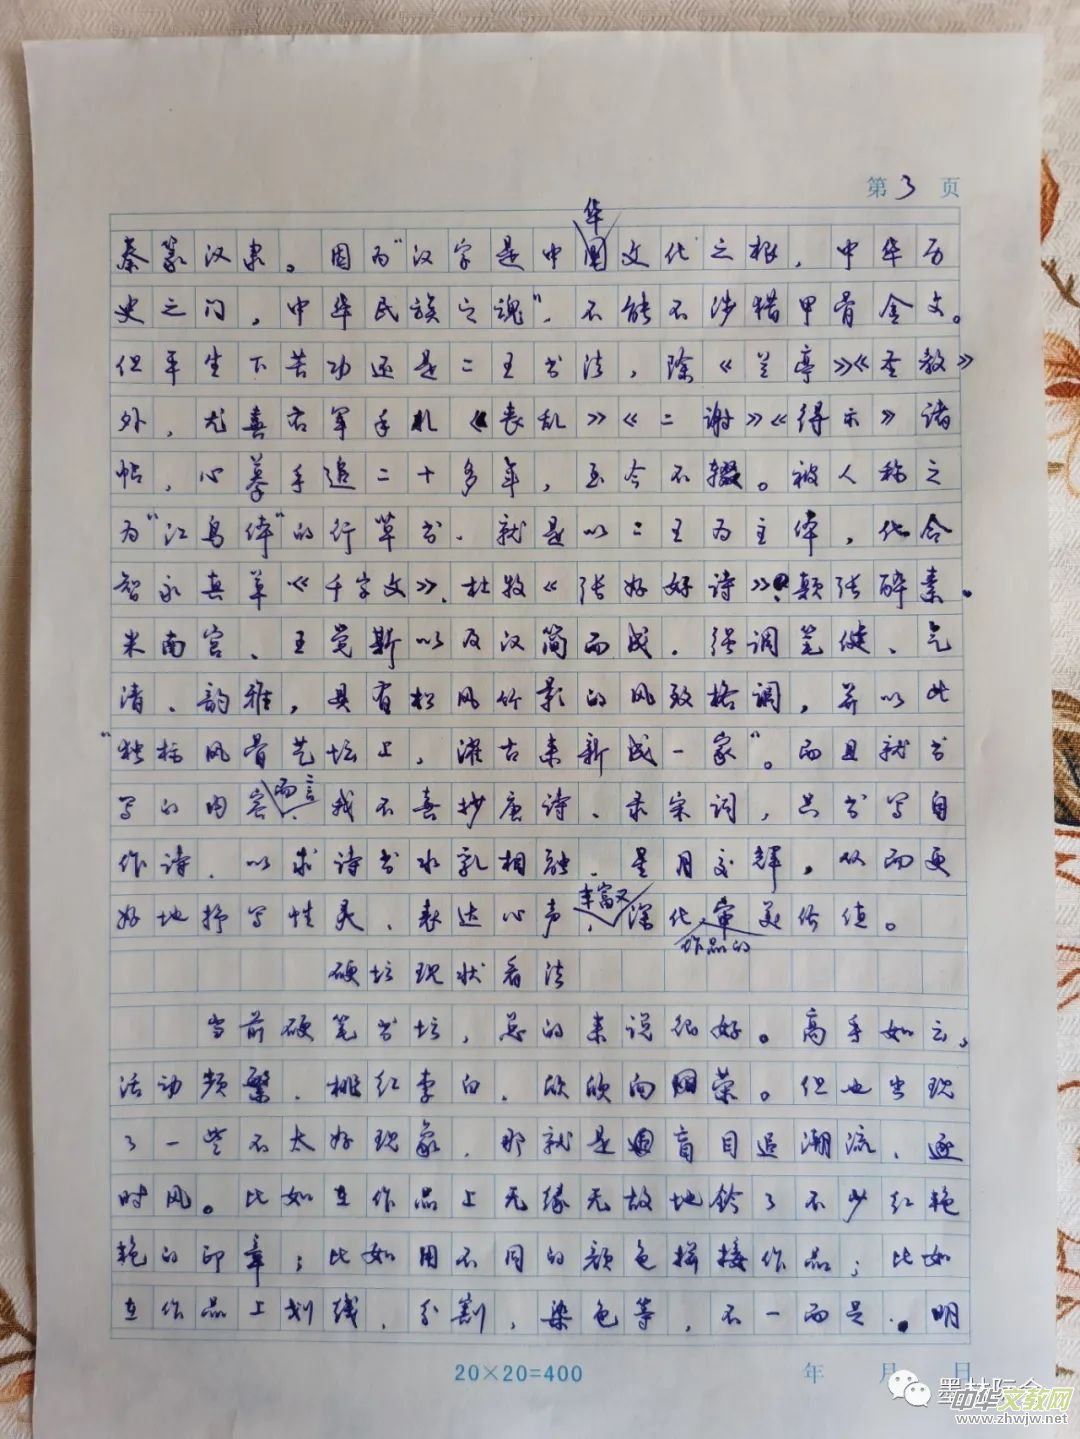 第3页
华
秦篆汉隶。因为“汉字是中国文化之根，中华历
史之门，中华民族之魂”，不能不涉猎甲骨金文。
但平生下苦功还是二王书法，除《兰亭》《圣教》
外，尤喜右军手札《丧乱》《二谢》《得示》诸
帖，心摹手追二十多年，至今不辍。被人称之
为“江鸟体”的行草书，就是以二王为主体，化合
智永真草《千字文》、杜牧《张好好诗》、颠张醉素、
米南宫、王觉斯以及汉简而成。强调笔健、气
清、韵雅，具有松风竹影的风致格调，并以此
“独标风骨艺坛上，濯古来新成一家”。而且就书
写的内容而言，我不喜抄唐诗、录宋词，只书写自
作诗，以求诗书水乳相融、星月交辉，从而更
好地抒写性灵、表达心声，丰富又深化作品的审美价值。
硬坛现状看法
当前硬笔书坛，总的来说很好。高手如云，
活动频繁，桃红李白，欣欣向荣。但也出现
了一些不太好现象，那就是盲目追潮流、逐
时风。比如在作品上无缘无故地钤了不少红艳
艳的印章；比如用不同的颜色拼接作品；比如
在作品上划线，分割，染色等，不一而足。明
20×20=400 年 月 日
墨林际会
中华文教网
www.zhwjw.net